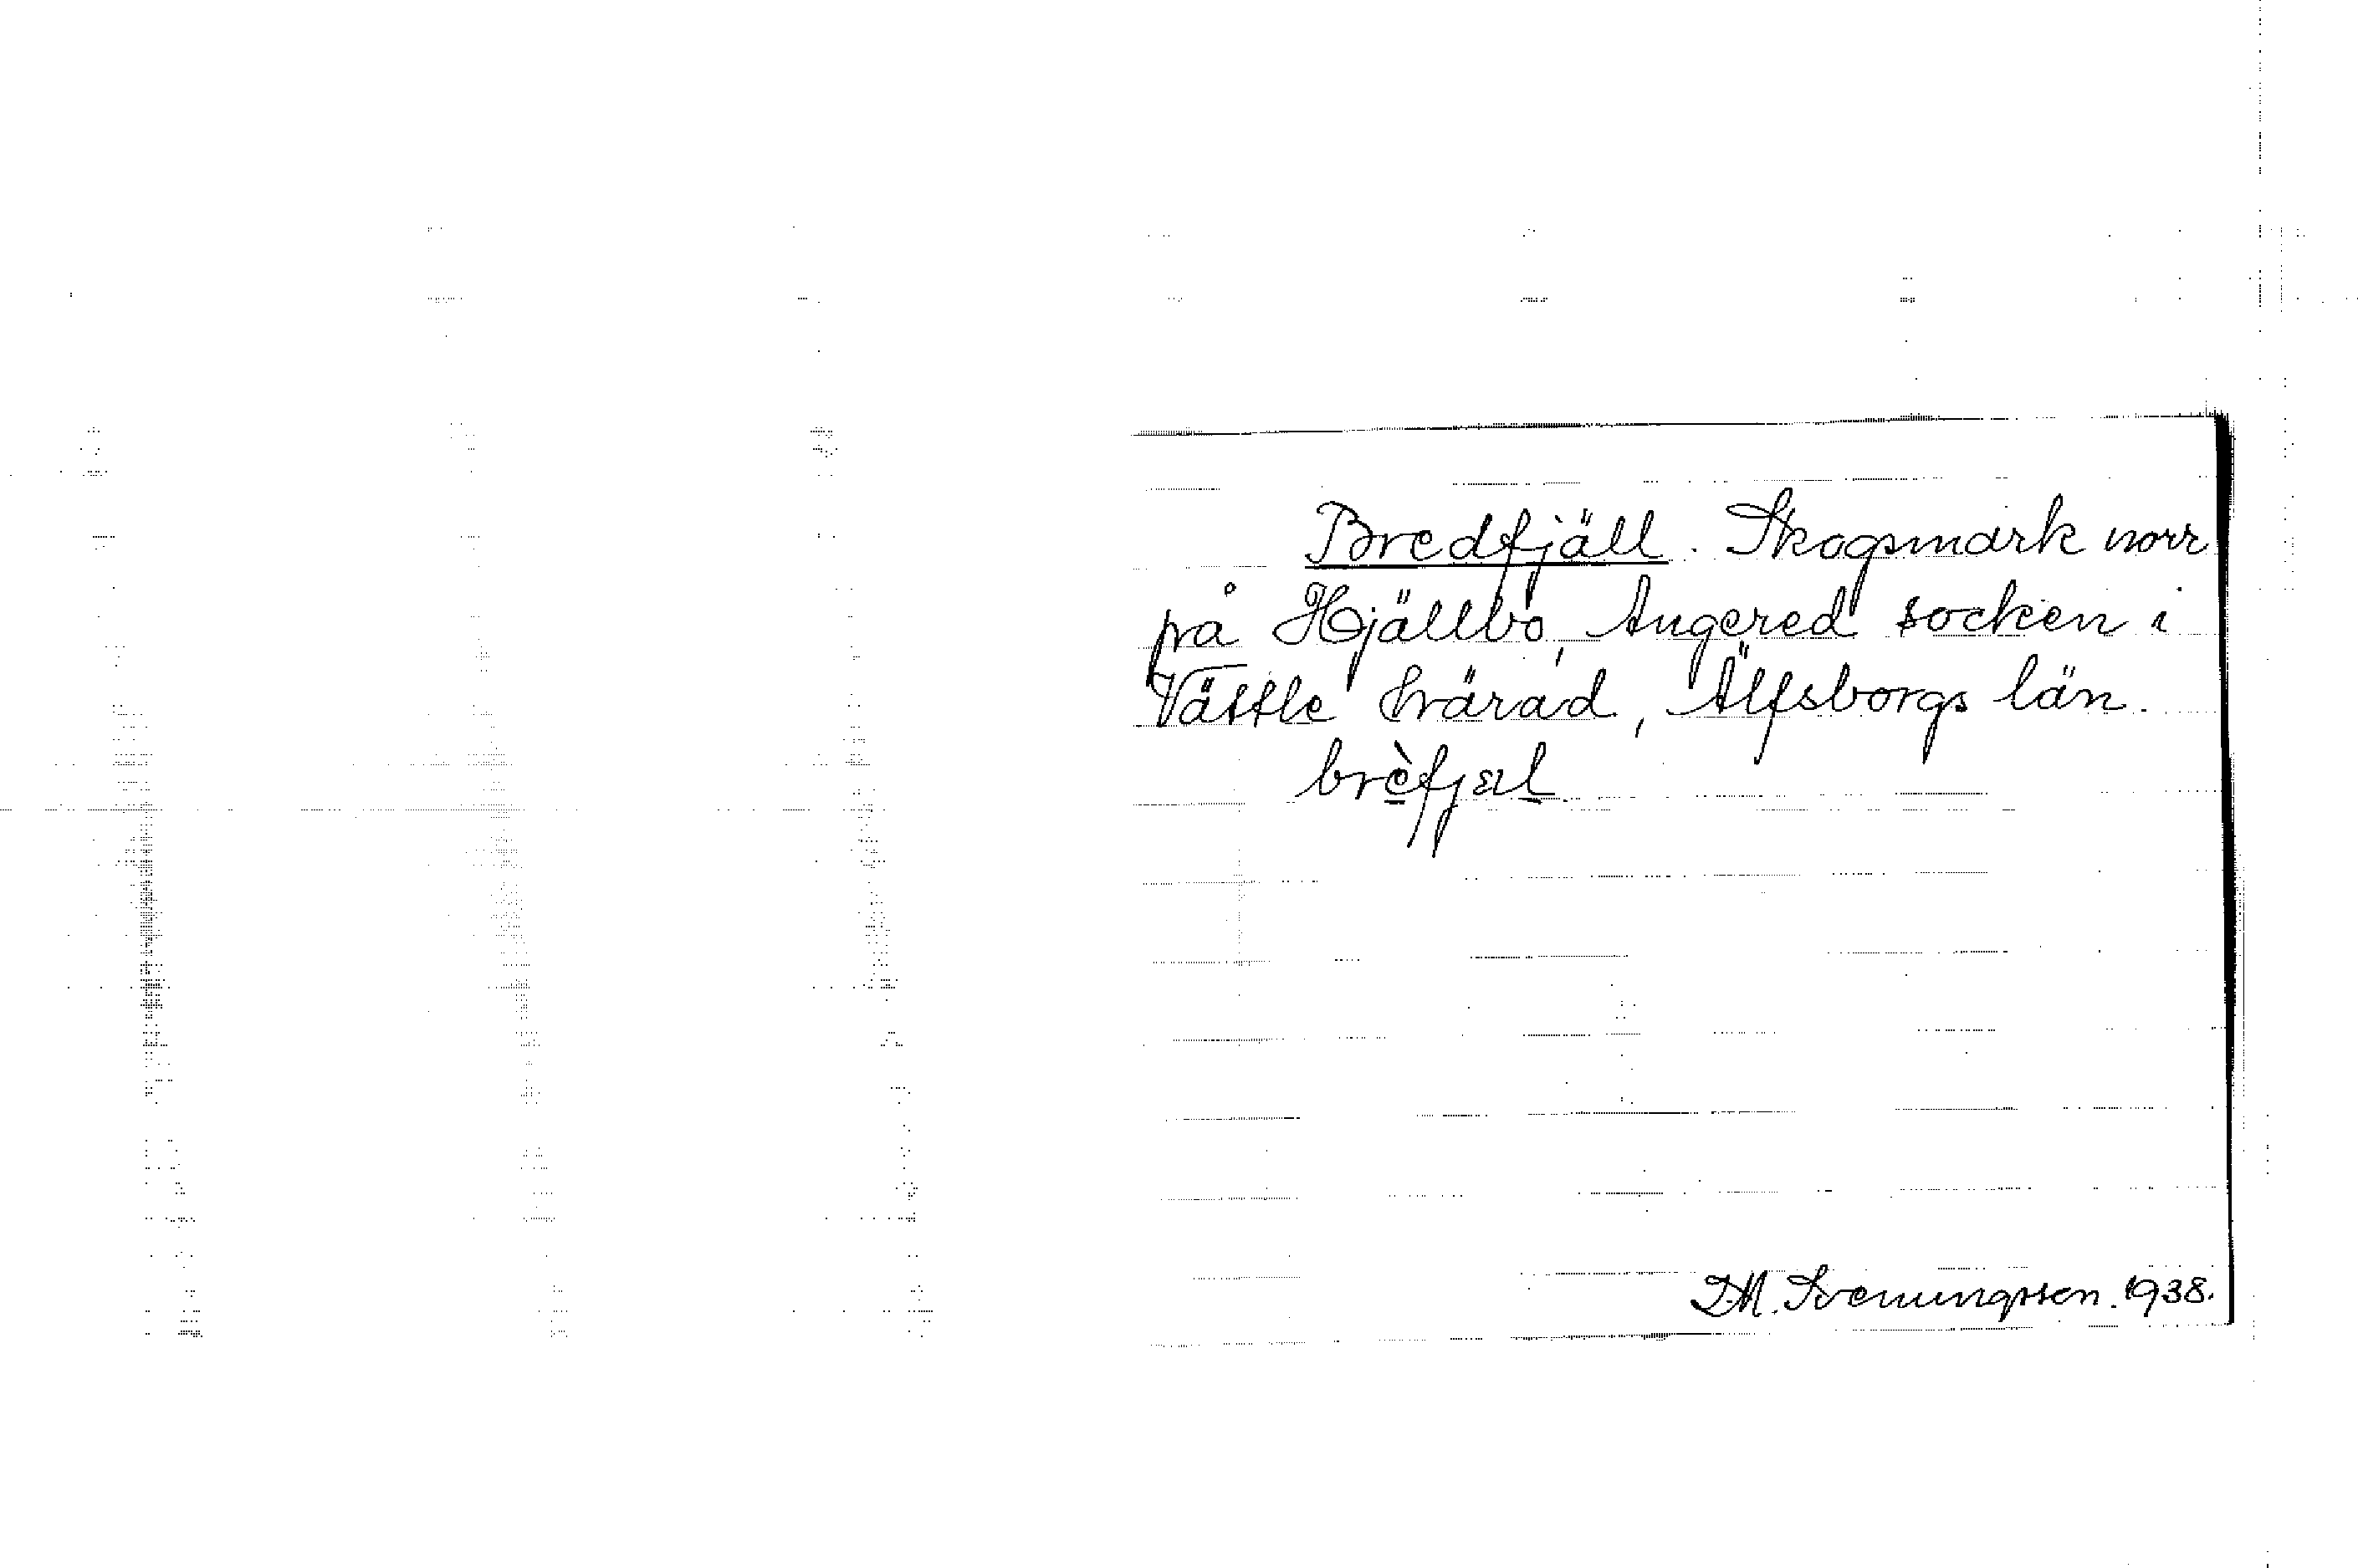 Bredfjäll. Skogsmark norr
på Hjällbo, Angered socken i
Vättle härad, Älfsborgs län.
brèfjæl
D.M. Svenungsson. 1938.